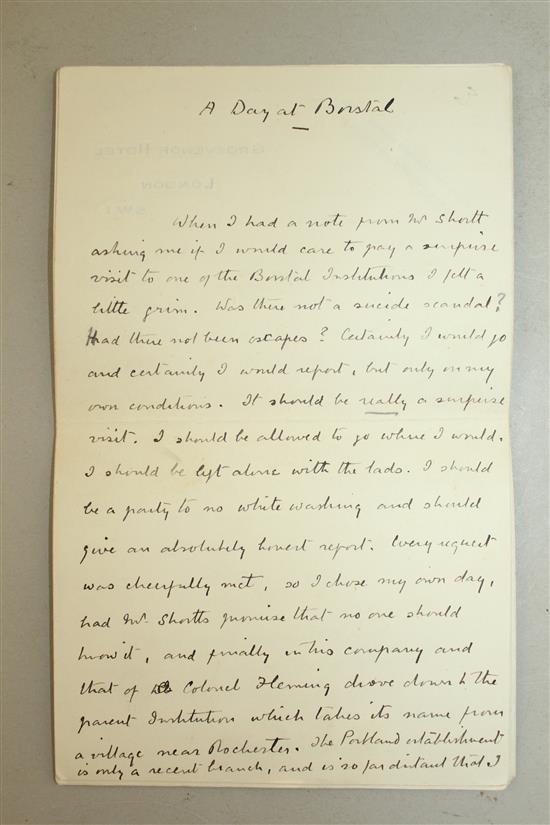 A Day at Borstal
GROSVENOR HOTEL
LONDON
SW1
When I had a note from Mr Shortt
asking me if I would care to pay a surprise
visit to one of the Borstal Institutions I felt a
little grim. Was there not a suicide scandal?
Had there not been escapes? Certainly I would go
and certainly I would report, but only on my
own conditions. It should be really a surprise
visit. I should be allowed to go where I would.
I should be left alone with the lads. I should
be a party to no white washing and should
give an absolutely honest report. Every request
was cheerfully met, so I chose my own day,
had Mr. Shortts promise that no one should
know it, and finally in his company and
that of Colonel Fleming drove down to the
parent Institution which takes its name from
a village near Rochester. The Portland establishment
is only a recent branch, and is so far distant that I